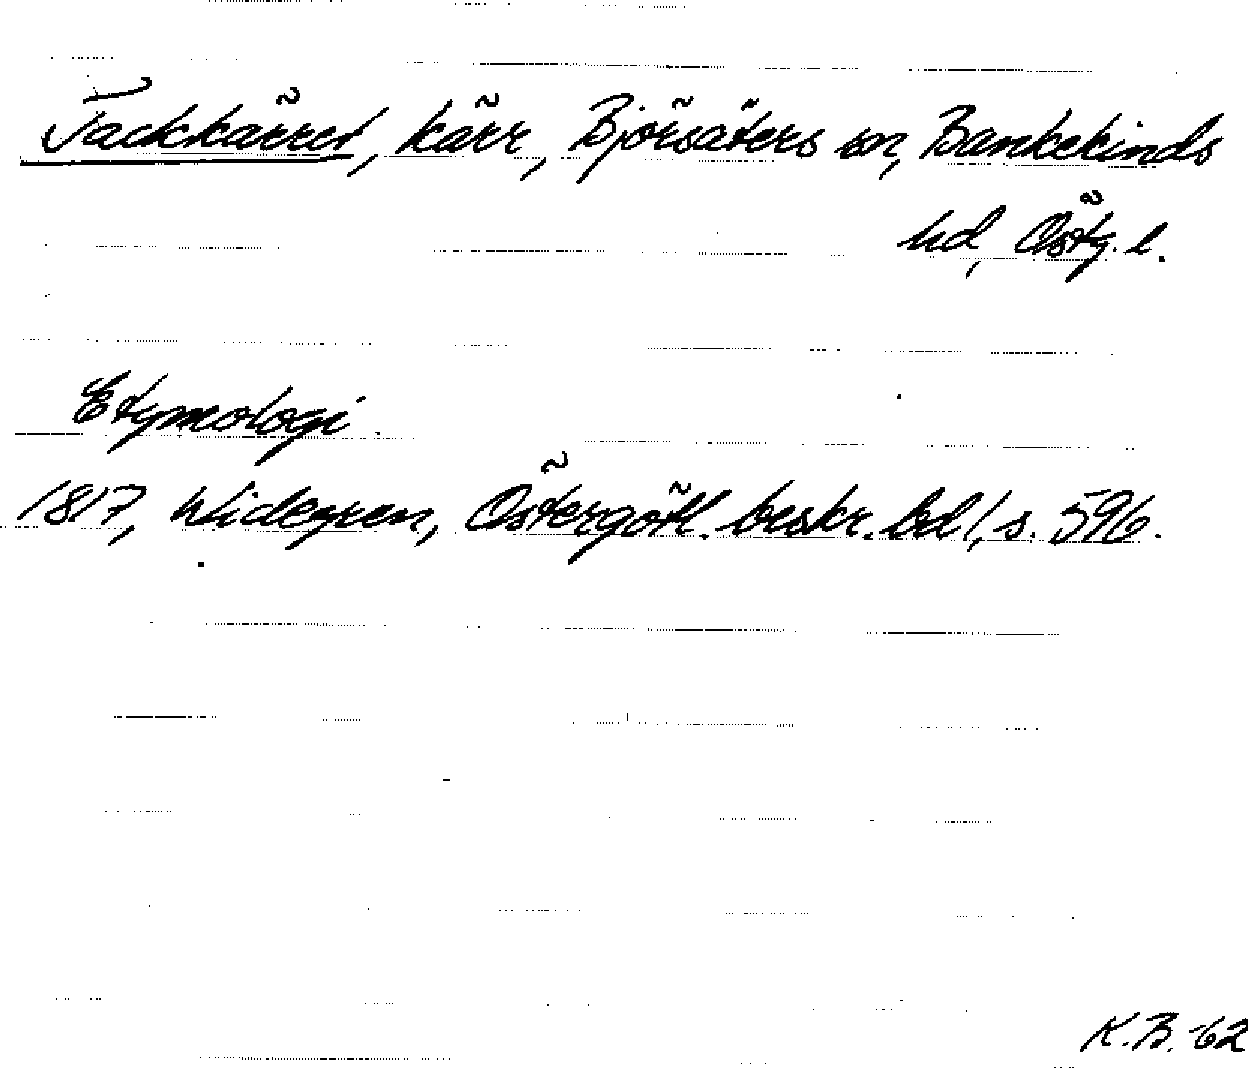 Tackkärret, kärr, Björsäters sn, Bankekinds
hd, Östg. l.
Etymologi.
1817, Widegren, Östergötl. beskr. bd 1, s. 596.
K.B. -62